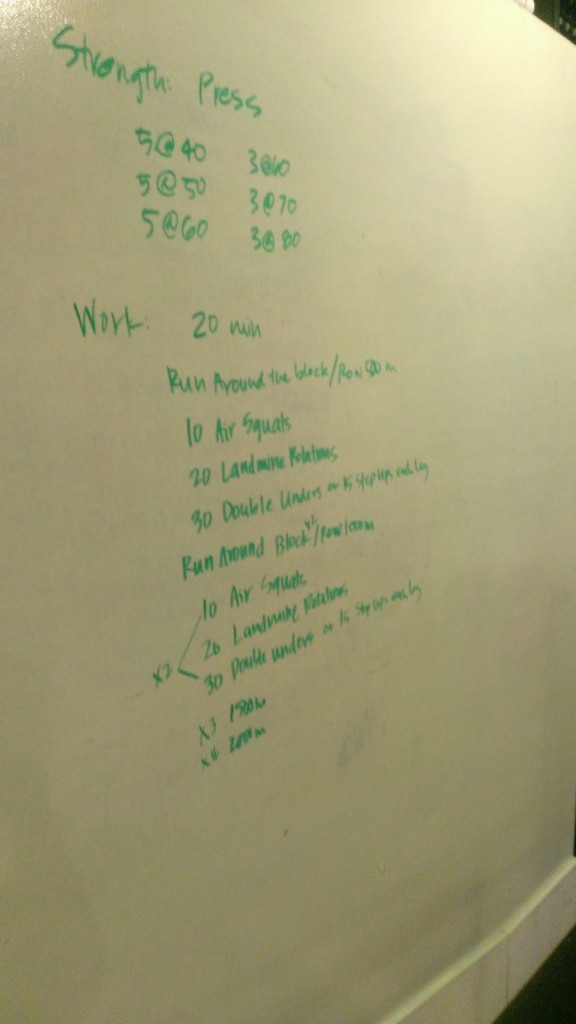 Strength: Press
5@40 3@60
5@50 3@70
5@60 3@80
Work: 20 min
Run Around the block/Row 500 m
10 Air Squats
20 Landmine Rotations
30 Double Unders or 15 Step Ups each leg
Run Around Block x2/Row 1000m
10 Air Squats
20 Landmine Rotations
x2
30 Double Unders or 15 Step ups each leg
x3 1500m
x4 2000m